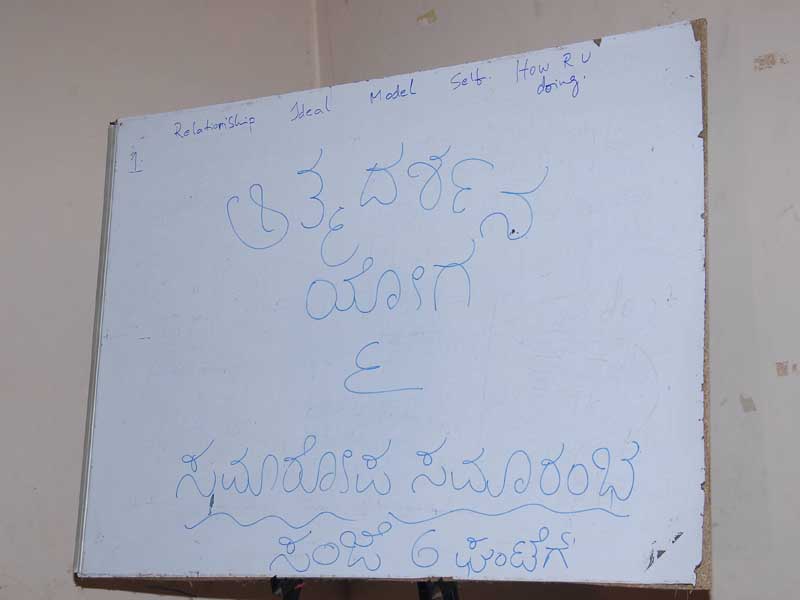 Relationship Ideal Model Self. How R U
doing.
1.
ಆತ್ಮದರ್ಶನ
ಯೋಗ
೬
ಸಮಾರೋಪ ಸಮಾರಂಭ
ಸಂಜೆ 6 ಘಂಟೆಗೆ